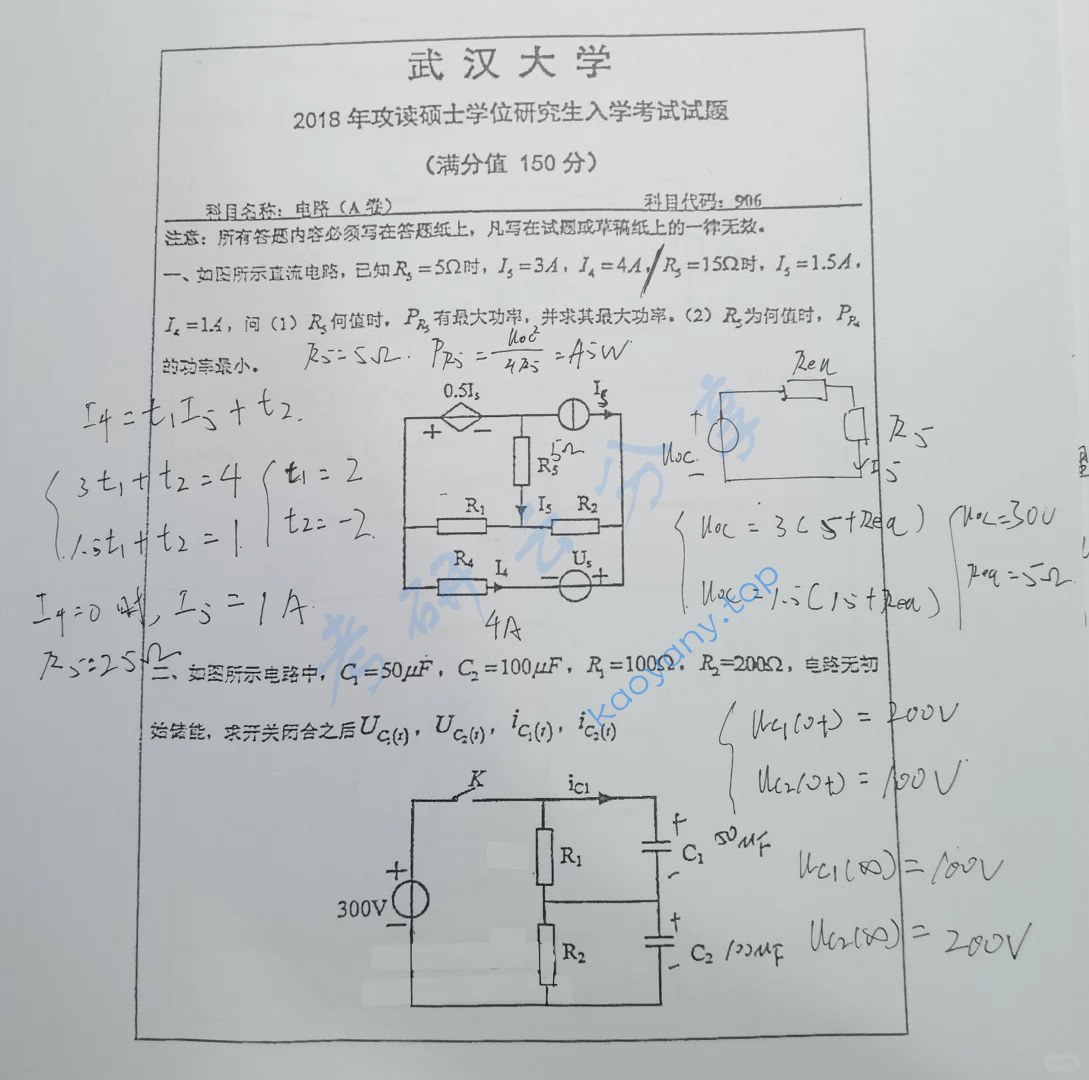 武汉大学
2018 年攻读硕士学位研究生入学考试试题
（满分值 150 分）
科目名称：电路（A 卷） 科目代码：906
注意：所有答题内容必须写在答题纸上，凡写在试题或草稿纸上的一律无效。
一、如图所示直流电路，已知 R₅＝5Ω时，I₅＝3A，I₄＝4A，/ R₅＝15Ω时，I₅＝1.5A，
I₄＝1A，问（1）R₅何值时，P_R₅有最大功率，并求其最大功率。（2）R₅为何值时，P_R₄
的功率最小。
R5=5Ω. PR5 = uoc²/4R5 = 45W
I4=t1I5+t2.
3t1+t2=4
1.5t1+t2=1.
t1=2
t2=-2
I4=0 时, I5=1A.
R5=25Ω
0.5I₅
+ -
I₅
R₅ 5Ω
R₁ I₅ R₂
R₄ I₄ - Uₛ +
4A
Req
uoc
+
-
R5
I5
uoc = 3(5+Req)
uoc = 1.5(15+Req)
uoc=30V
Req=5Ω
考研云分享
kaoyany.top
二、如图所示电路中，C₁＝50μF，C₂＝100μF，R₁＝100Ω，R₂＝200Ω，电路无初
始储能，求开关闭合之后U_C₁(t)，U_C₂(t)，i_C₁(t)，i_C₂(t)
uc1(0+) = 200V
uc2(0+) = 100V
uc1(∞) = 100V
uc2(∞) = 200V
K
iC1
+
300V
-
R₁
R₂
+
C₁ 50μF
-
+
C₂ 100μF
-